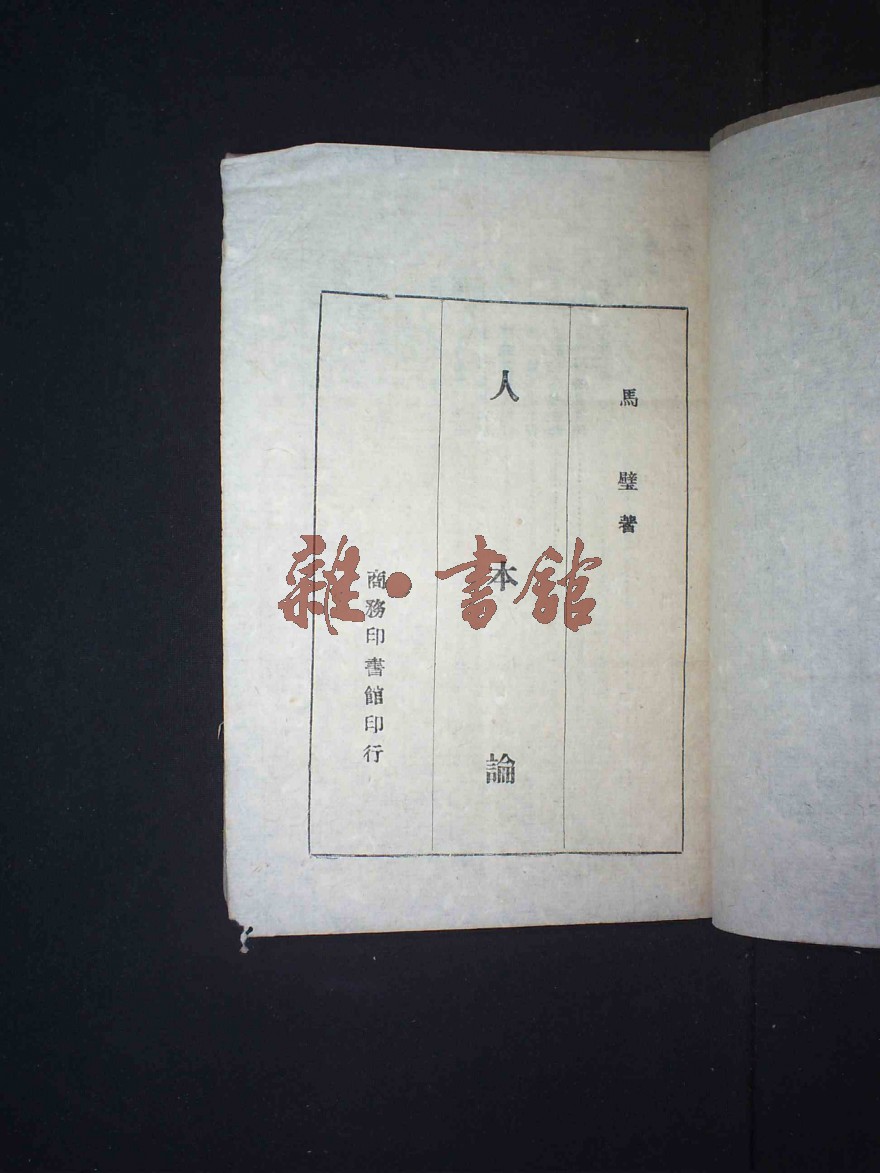 馬璧著
人本論
商務印書館印行
雜·書館